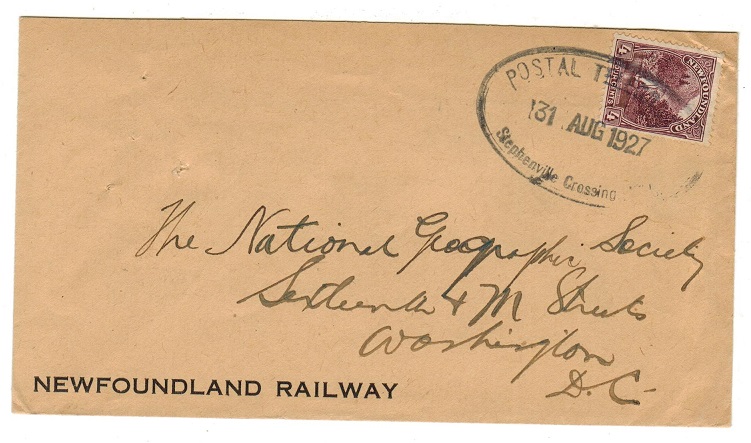 POSTAL
31 AUG 1927
Stephenville Crossing
4 NEWFOUNDLAND 4
CENTS
The National Geographic Society
Sixteenth & M Streets
Washington
D.C.
NEWFOUNDLAND RAILWAY